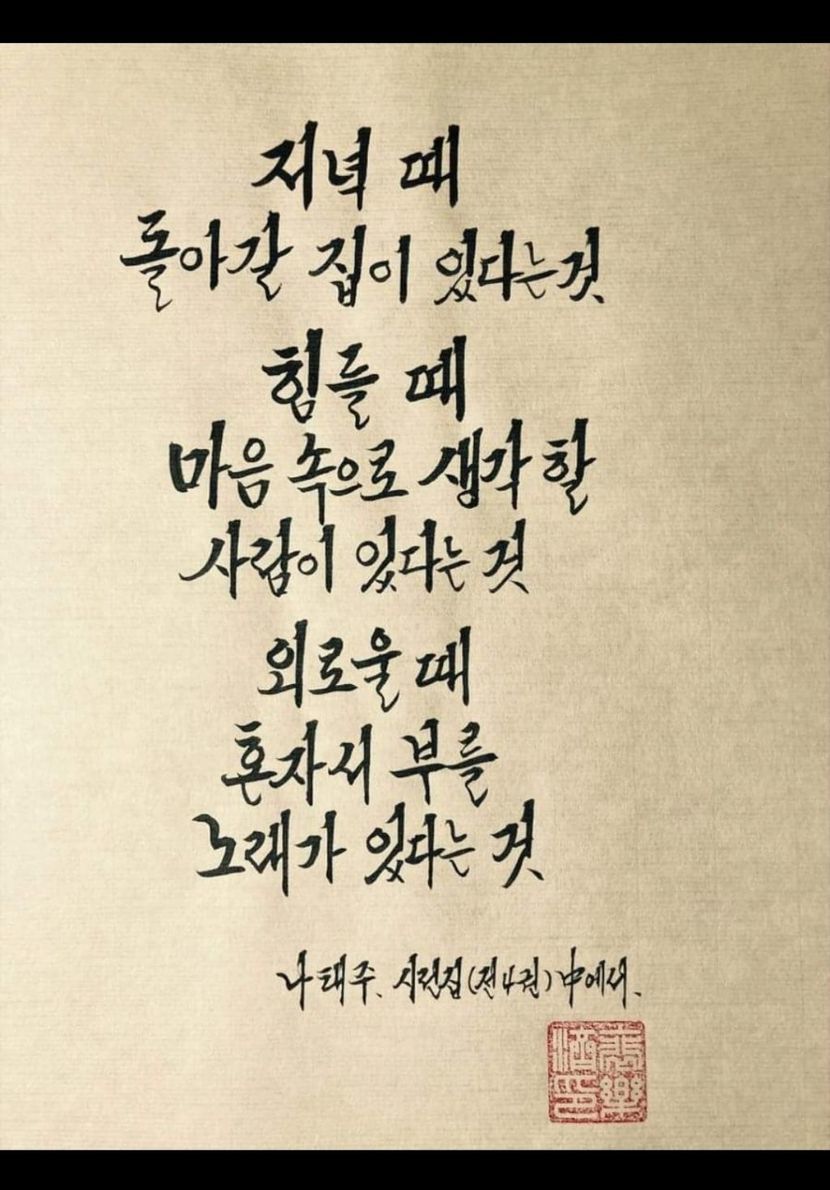 저녁 때
돌아갈 집이 있다는것
힘들 때
마음 속으로 생각 할
사람이 있다는 것
외로울 때
혼자서 부를
노래가 있다는 것
나태주. 시전집(전4권)中에서.